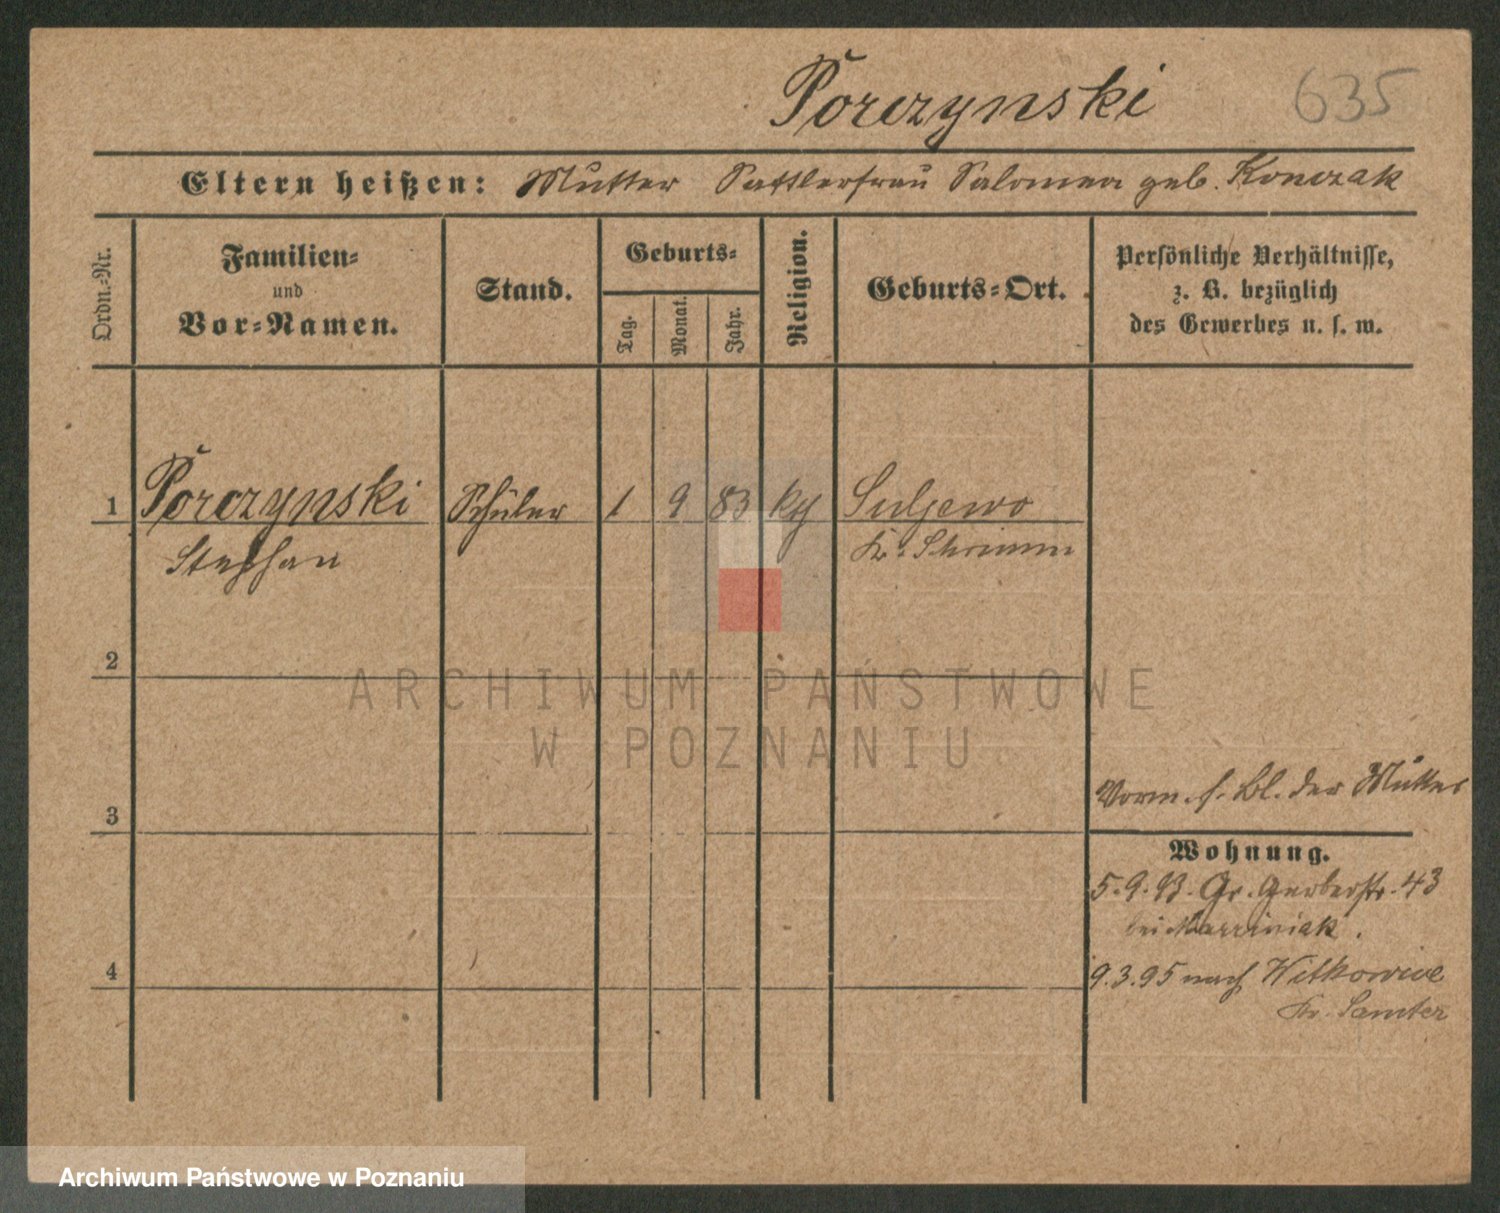 Porczynski 635
Eltern heißen: Mutter Sattlerfrau Salomea geb. Konczak
Ordn.-Nr.
Familien-
und
Vor-Namen.
Stand.
Geburts-
Tag.
Monat.
Jahr.
Religion.
Geburts-Ort.
Persönliche Verhältnisse,
z. B. bezüglich
des Gewerbes u. s. w.
1 Porczynski Schüler 1 9 83 kg Suljewo
Stephan Kr. Schrimm
2
ARCHIWUM PAŃSTWOWE
W POZNANIU
Vorm. s. Bl. der Mutter
3
Wohnung.
5.9.93. Gr. Gerberstr. 43
bei
4
9.3.95 nach Witkowice
Kr. Samter
Archiwum Państwowe w Poznaniu